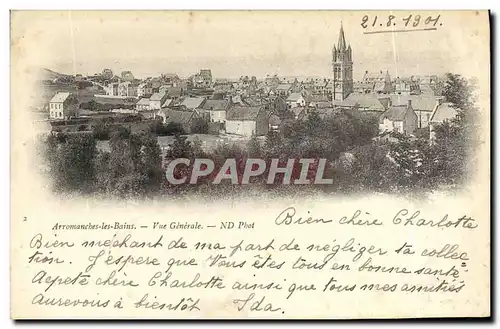 21.8.1901.
CPARHAMA
2
Arromanches-les-Bains. — Vue Générale. — ND Phot
Bien chère Charlotte
Bien méchant de ma part de négliger ta collec
tion. J'espère que Vous êtes tous en bonne santé.
Acpete chère Charlotte ainsi que tous mes amitiés
aurevous à bientôt Ida.